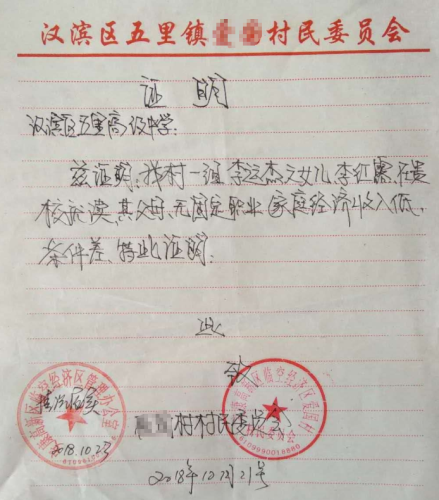 汉滨区五里镇村民委员会
证 明
汉滨区五里高级中学:
兹证明,我村一组李运杰之女儿李红 在贵
校就读,其父母无固定职业,家庭经济收入低、
条件差、特此证明。
此
致
情况属实
2018.10.23
村村民委员会
2018年10月21号